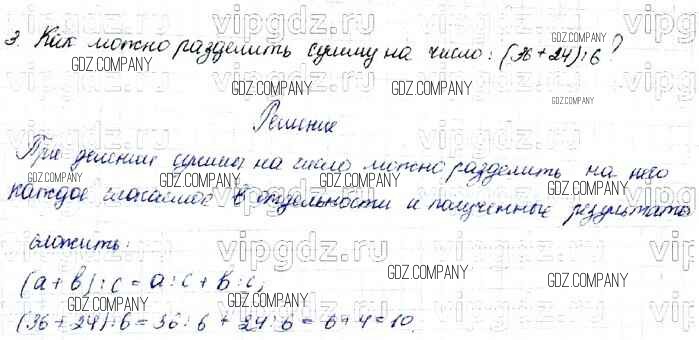 3. Как можно разделить сумму на число: (36+24):6?
Решение
При делении суммы на число можно разделить на него
каждое слагаемое в отдельности и полученные результаты
сложить:
(a+b):c=a:c+b:c,
(36+24):6=36:6+24:6=6+4=10.
vipgdz.ru
GDZ.COMPANY